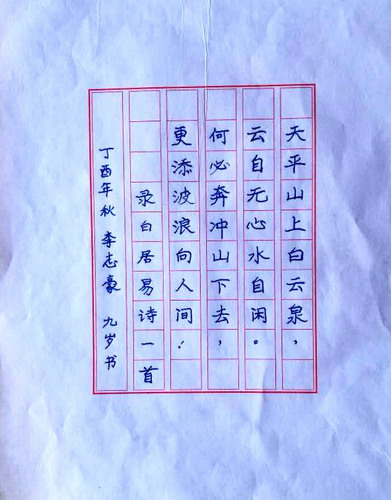 天平山上白云泉，
云自无心水自闲。
何必奔冲山下去，
更添波浪向人间！
录白居易诗一首
丁酉年秋 李志豪 九岁书